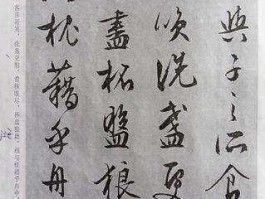 與子之所食
喚洗盞更
盡杯盤狼
枕藉乎舟